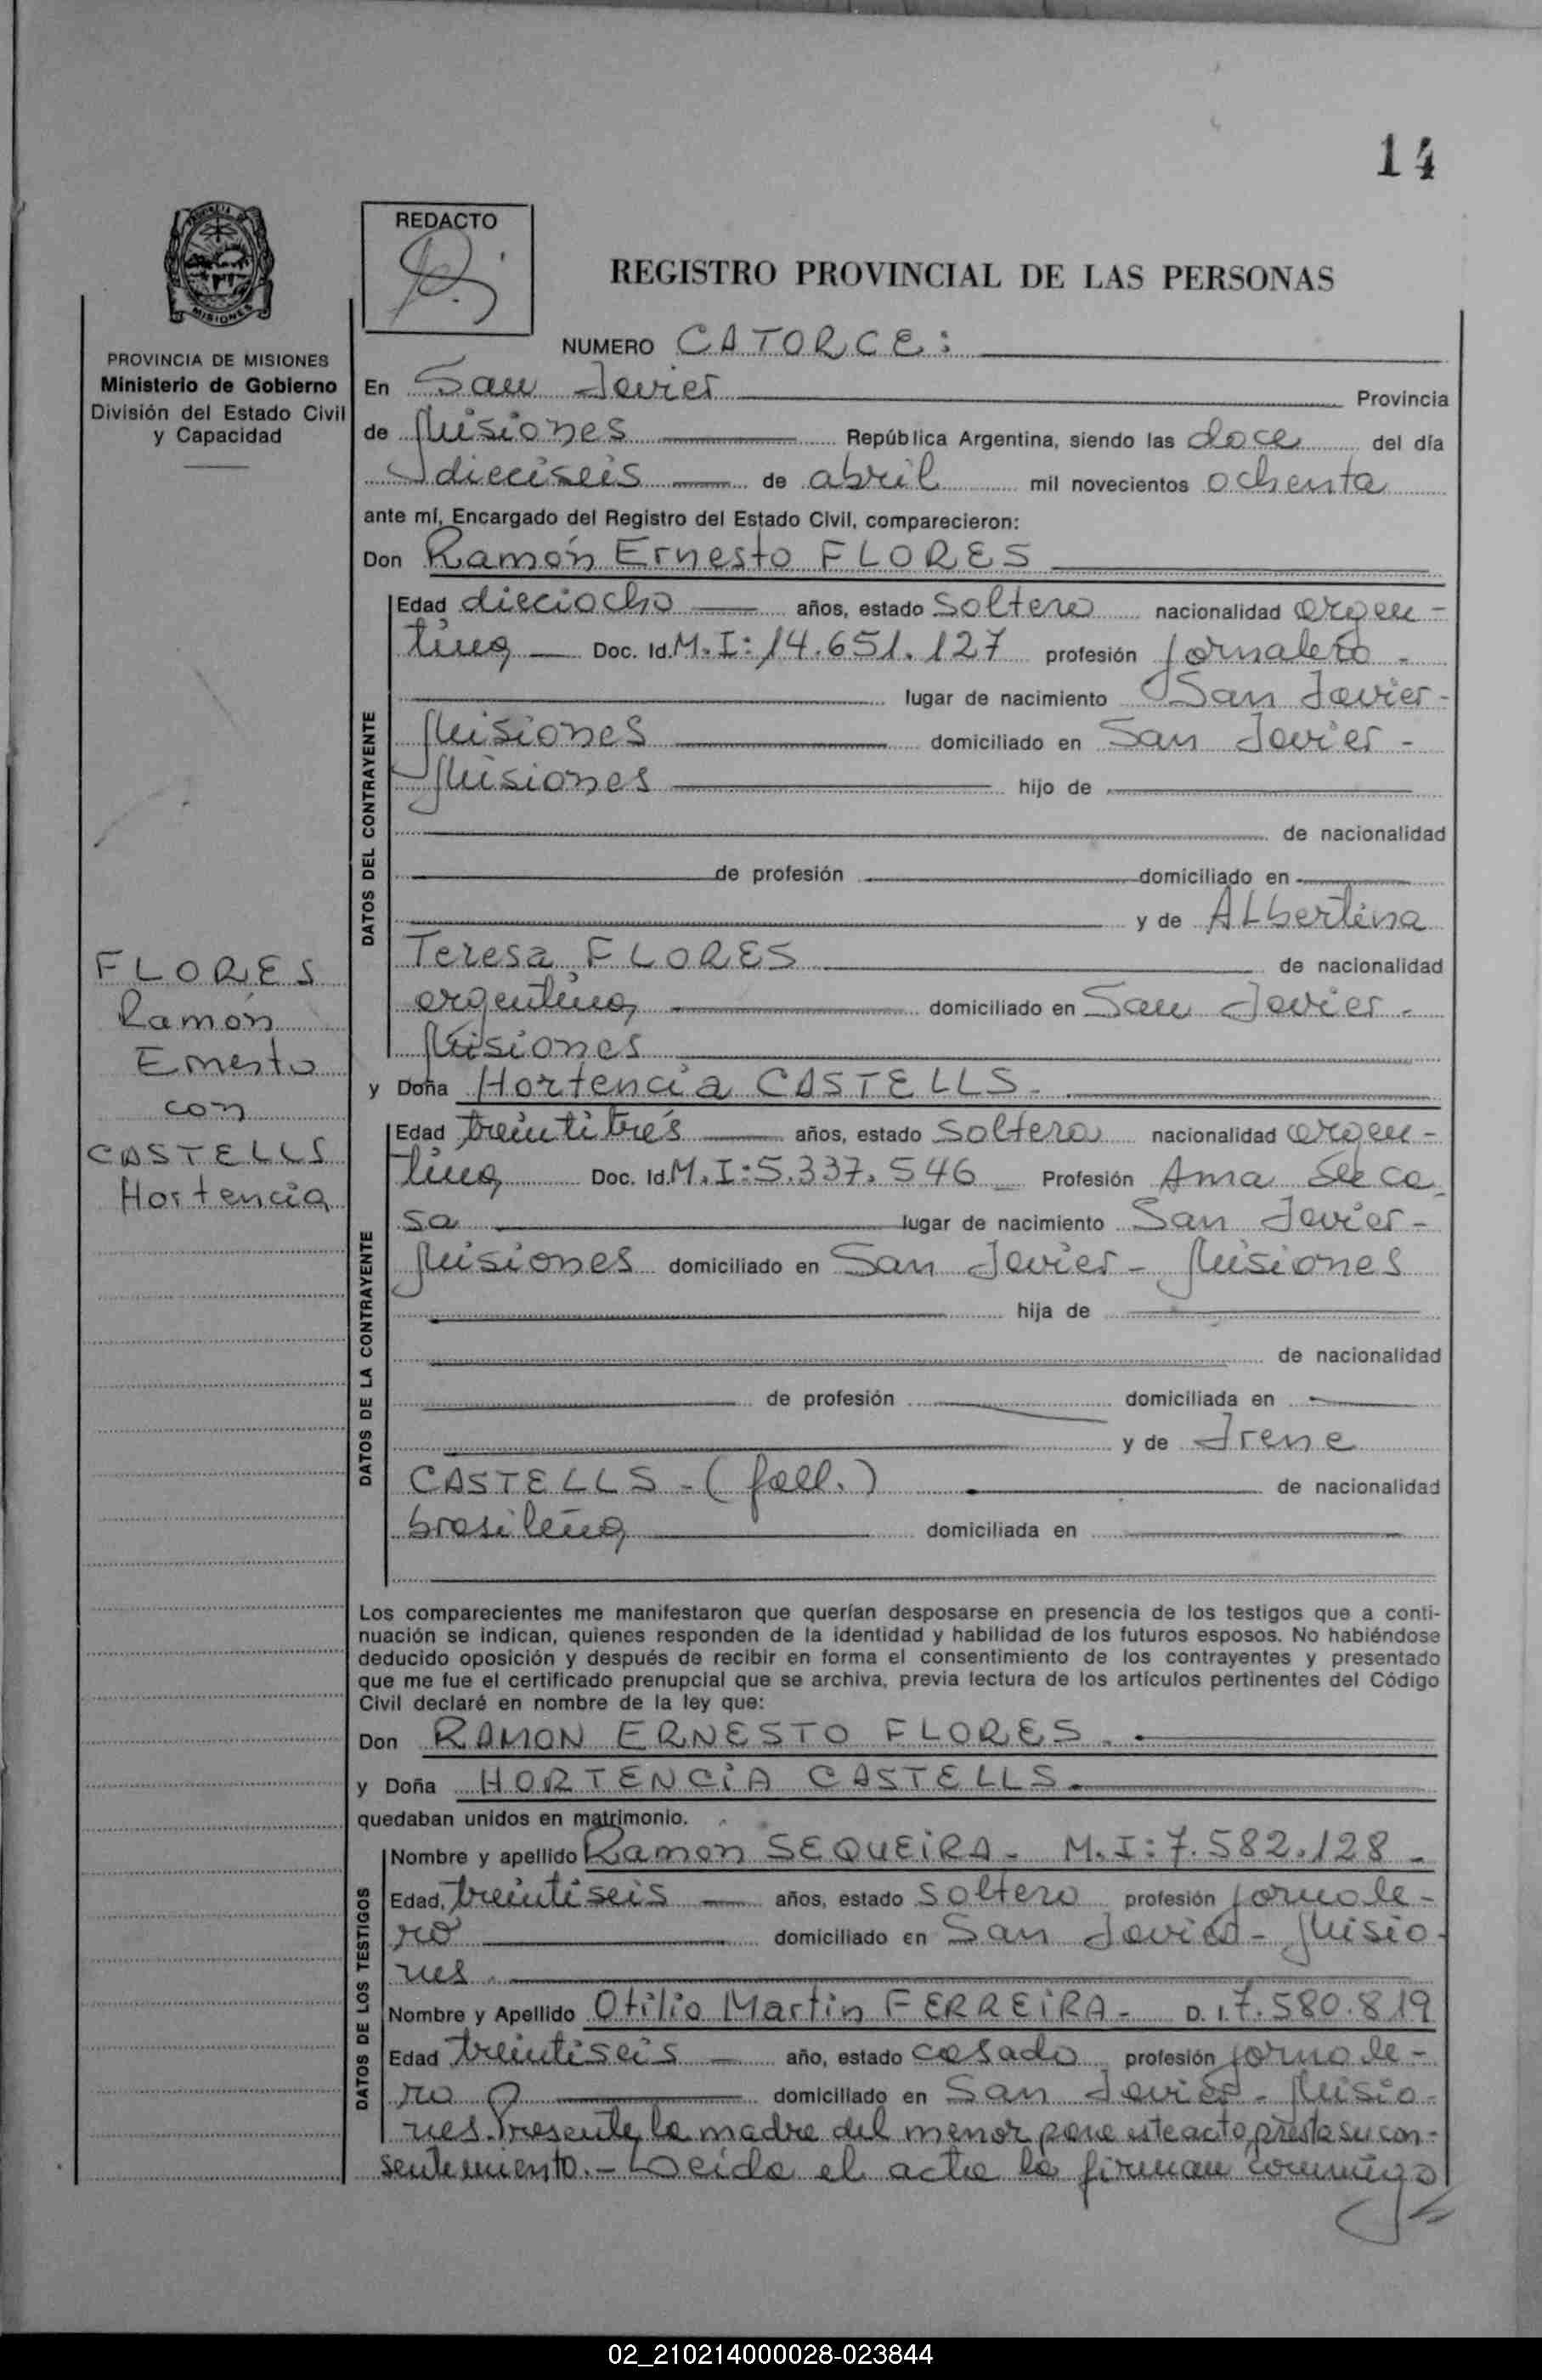 14
REDACTO
REGISTRO PROVINCIAL DE LAS PERSONAS
MISIONES
PROVINCIA DE MISIONES
Ministerio de Gobierno
División del Estado Civil
y Capacidad
NUMERO CATORCE:
En San Javier Provincia
de Misiones República Argentina, siendo las doce del día
dieciseis de abril mil novecientos ochenta
ante mí, Encargado del Registro del Estado Civil, comparecieron:
Don Ramón Ernesto FLORES
Edad dieciocho años, estado soltero nacionalidad argen-
tina Doc. Id. M.I: 14.651.127 profesión jornalero -
lugar de nacimiento San Javier -
Misiones domiciliado en San Javier -
Misiones hijo de
de nacionalidad
de profesión domiciliado en
y de ALbertina
Teresa FLORES de nacionalidad
argentina domiciliado en San Javier -
Misiones
y Doña Hortencia CASTELLS -
Edad treintitrés años, estado soltera nacionalidad argen-
tina Doc. Id. M.I: 5.337.546 Profesión Ama de ca-
sa lugar de nacimiento San Javier -
Misiones domiciliado en San Javier - Misiones
hija de
de nacionalidad
de profesión domiciliada en
y de Irene
CASTELLS - (fall.) de nacionalidad
brasileña domiciliada en
DATOS DEL CONTRAYENTE
DATOS DE LA CONTRAYENTE
FLORES
Ramón
Ernesto
con
CASTELLS
Hortencia
Los comparecientes me manifestaron que querían desposarse en presencia de los testigos que a conti-
nuación se indican, quienes responden de la identidad y habilidad de los futuros esposos. No habiéndose
deducido oposición y después de recibir en forma el consentimiento de los contrayentes y presentado
que me fue el certificado prenupcial que se archiva, previa lectura de los artículos pertinentes del Código
Civil declaré en nombre de la ley que:
Don RAMON ERNESTO FLORES.
y Doña HORTENCIA CASTELLS.
quedaban unidos en matrimonio.
DATOS DE LOS TESTIGOS
Nombre y apellido Ramon SEQUEIRA - M.I: 7.582.128 -
Edad, treintiseis años, estado soltero profesión jornale-
ro domiciliado en San Javier - Misio-
nes.
Nombre y Apellido Otilio Martin FERREIRA - D.I. 7.580.819
Edad treintiseis año, estado casado profesión jornale-
ro domiciliado en San Javier - Misio-
nes. Presente la madre del menor para este acto presta su con-
sentimiento. - Leida el acta la firman conmigo
02_210214000028-023844